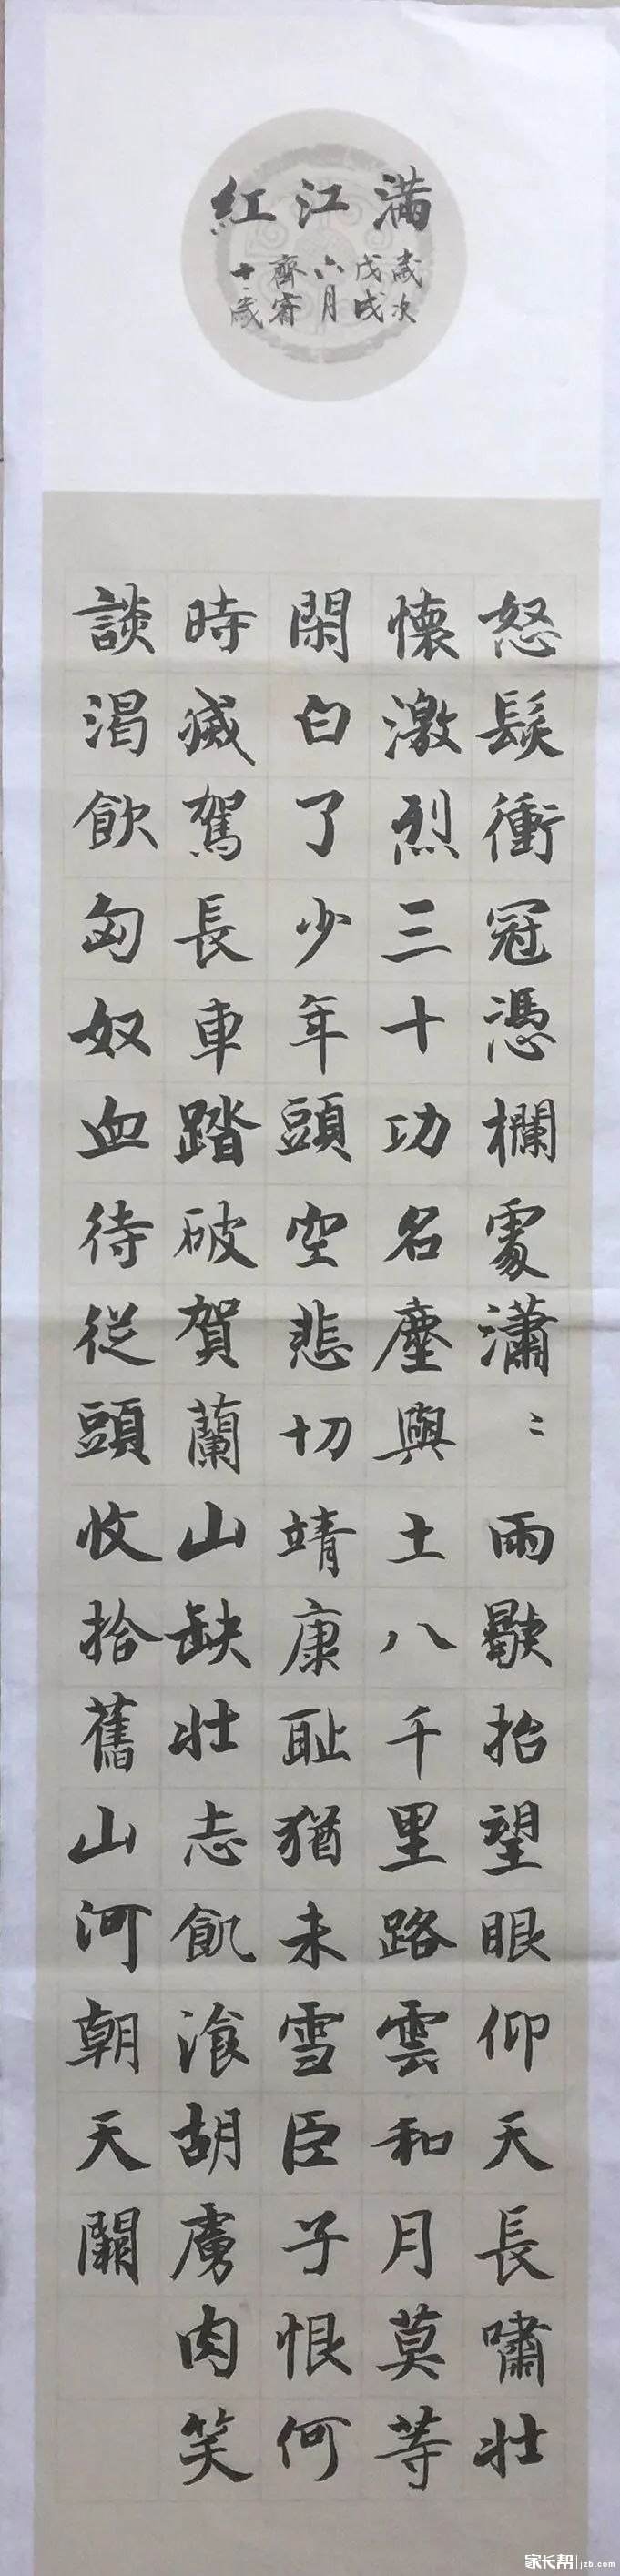 滿江紅
歲次
戊戌
六月
齊寄
十二歲
怒髮衝冠憑欄處瀟〻雨歇抬望眼仰天長嘯壯
懷激烈三十功名塵與土八千里路雲和月莫等
閑白了少年頭空悲切靖康耻猶未雪臣子恨何
時滅駕長車踏破賀蘭山缺壯志飢湌胡虜肉笑
談渴飲匈奴血待從頭收拾舊山河朝天闕
家长帮 jzb.com